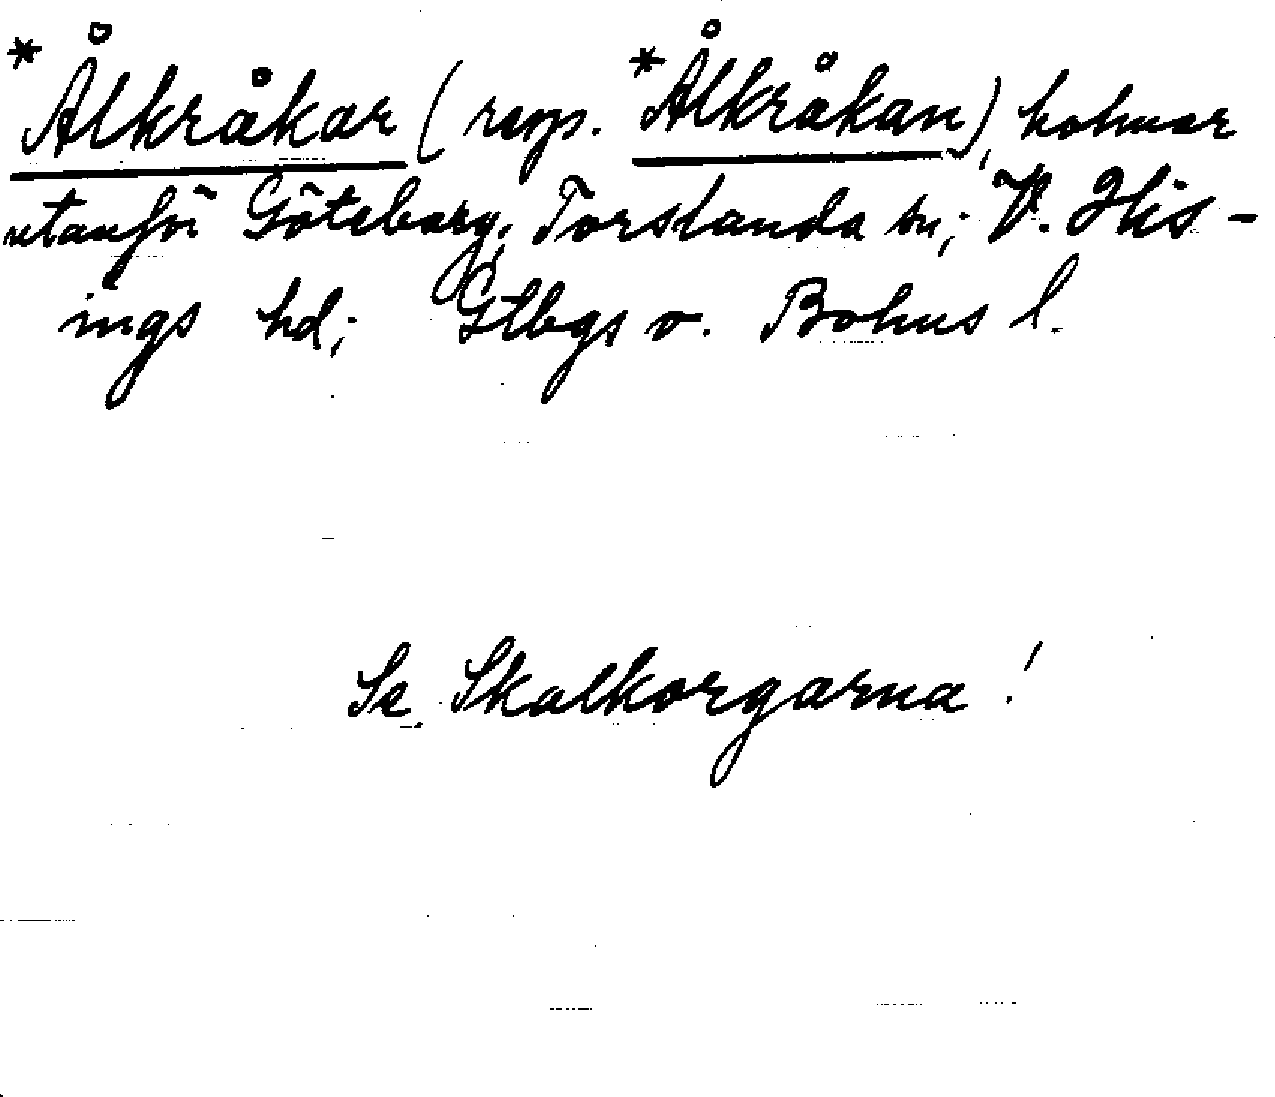 *Ålkråkar (resp. *Ålkråkan), holmar
utanför Göteborg; Torslanda sn; V. His-
ings hd; Gtbgs o. Bohus l.
Se Skalkorgarna!